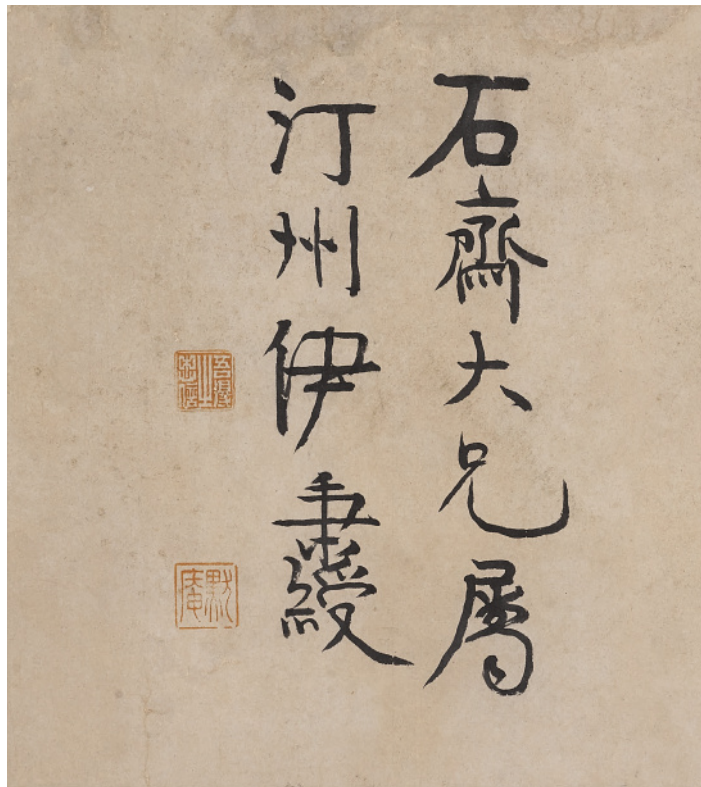 石齋大兄屬
汀州伊秉綬
默庵